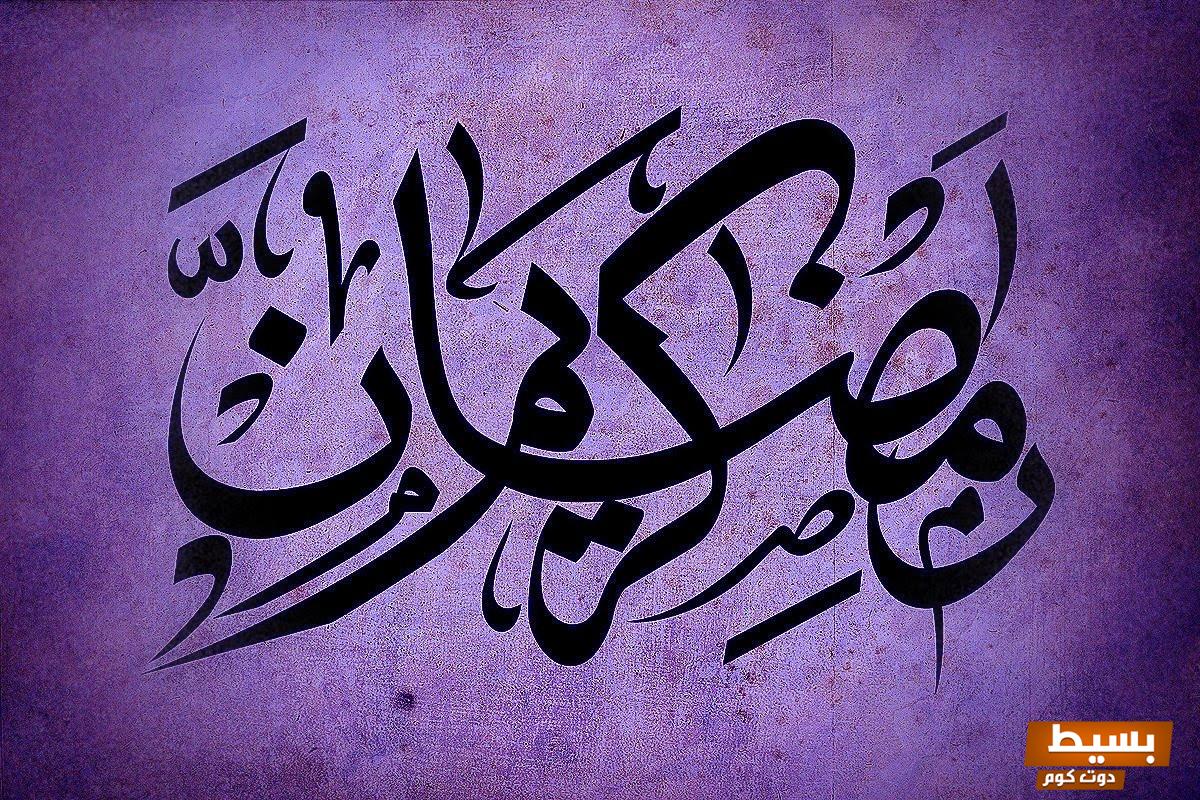 رمضان كريم
بسيط
دوت كوم